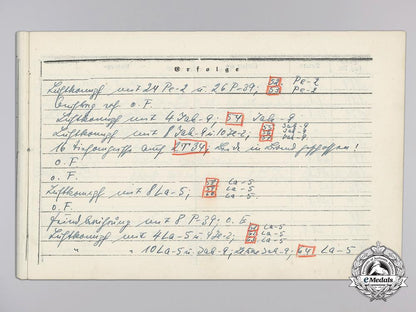 Erfolge
Luftkampf mit 24 Pe-2 u. 26 P-39; 52. Pe-2
53. Pe-2
Auftrag o.F.
Luftkampf mit 4 Jak-9; 54 Jak-9
Luftkampf mit 8 Jak-9 u. 10 Je-2; Jak-9
Jak-9
16 Tiefangriffe auf 2 T 34; in Brand geschossen!
o.F.
o.F.
Luftkampf mit 8 La-5; La-5
La-5
La-5
o.F.
Feindberührung mit 8 P-39; o.E.
Luftkampf mit 4 La-5 u. 4 Je-2; La-5
La-5
La-5
" " 10 La-5 u. Jak-9; Jak-9; 64 La-5
eMedals